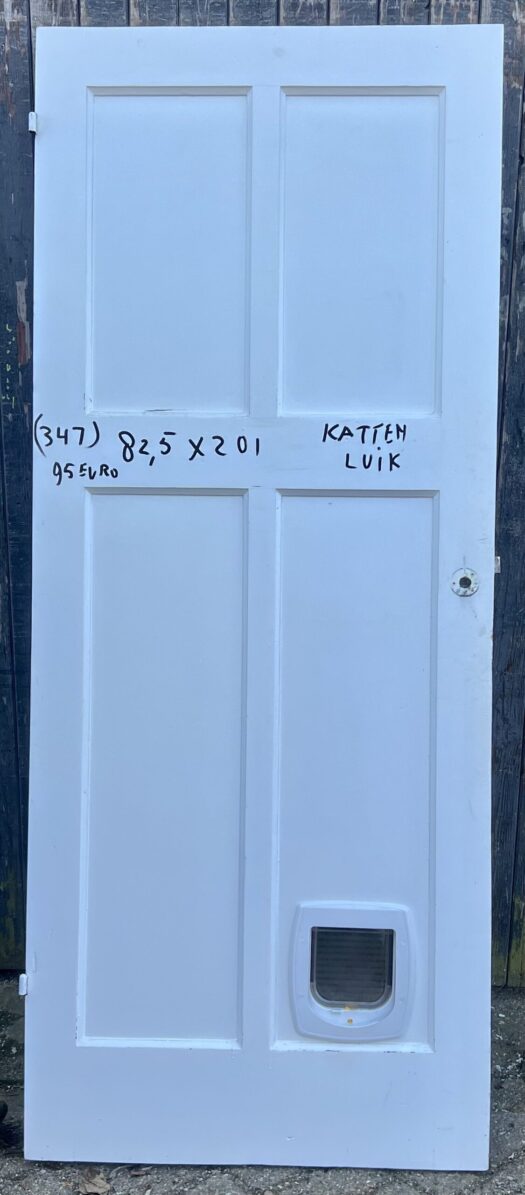 (347) 82,5 X 201
95 EURO
KATTEN
LUiK